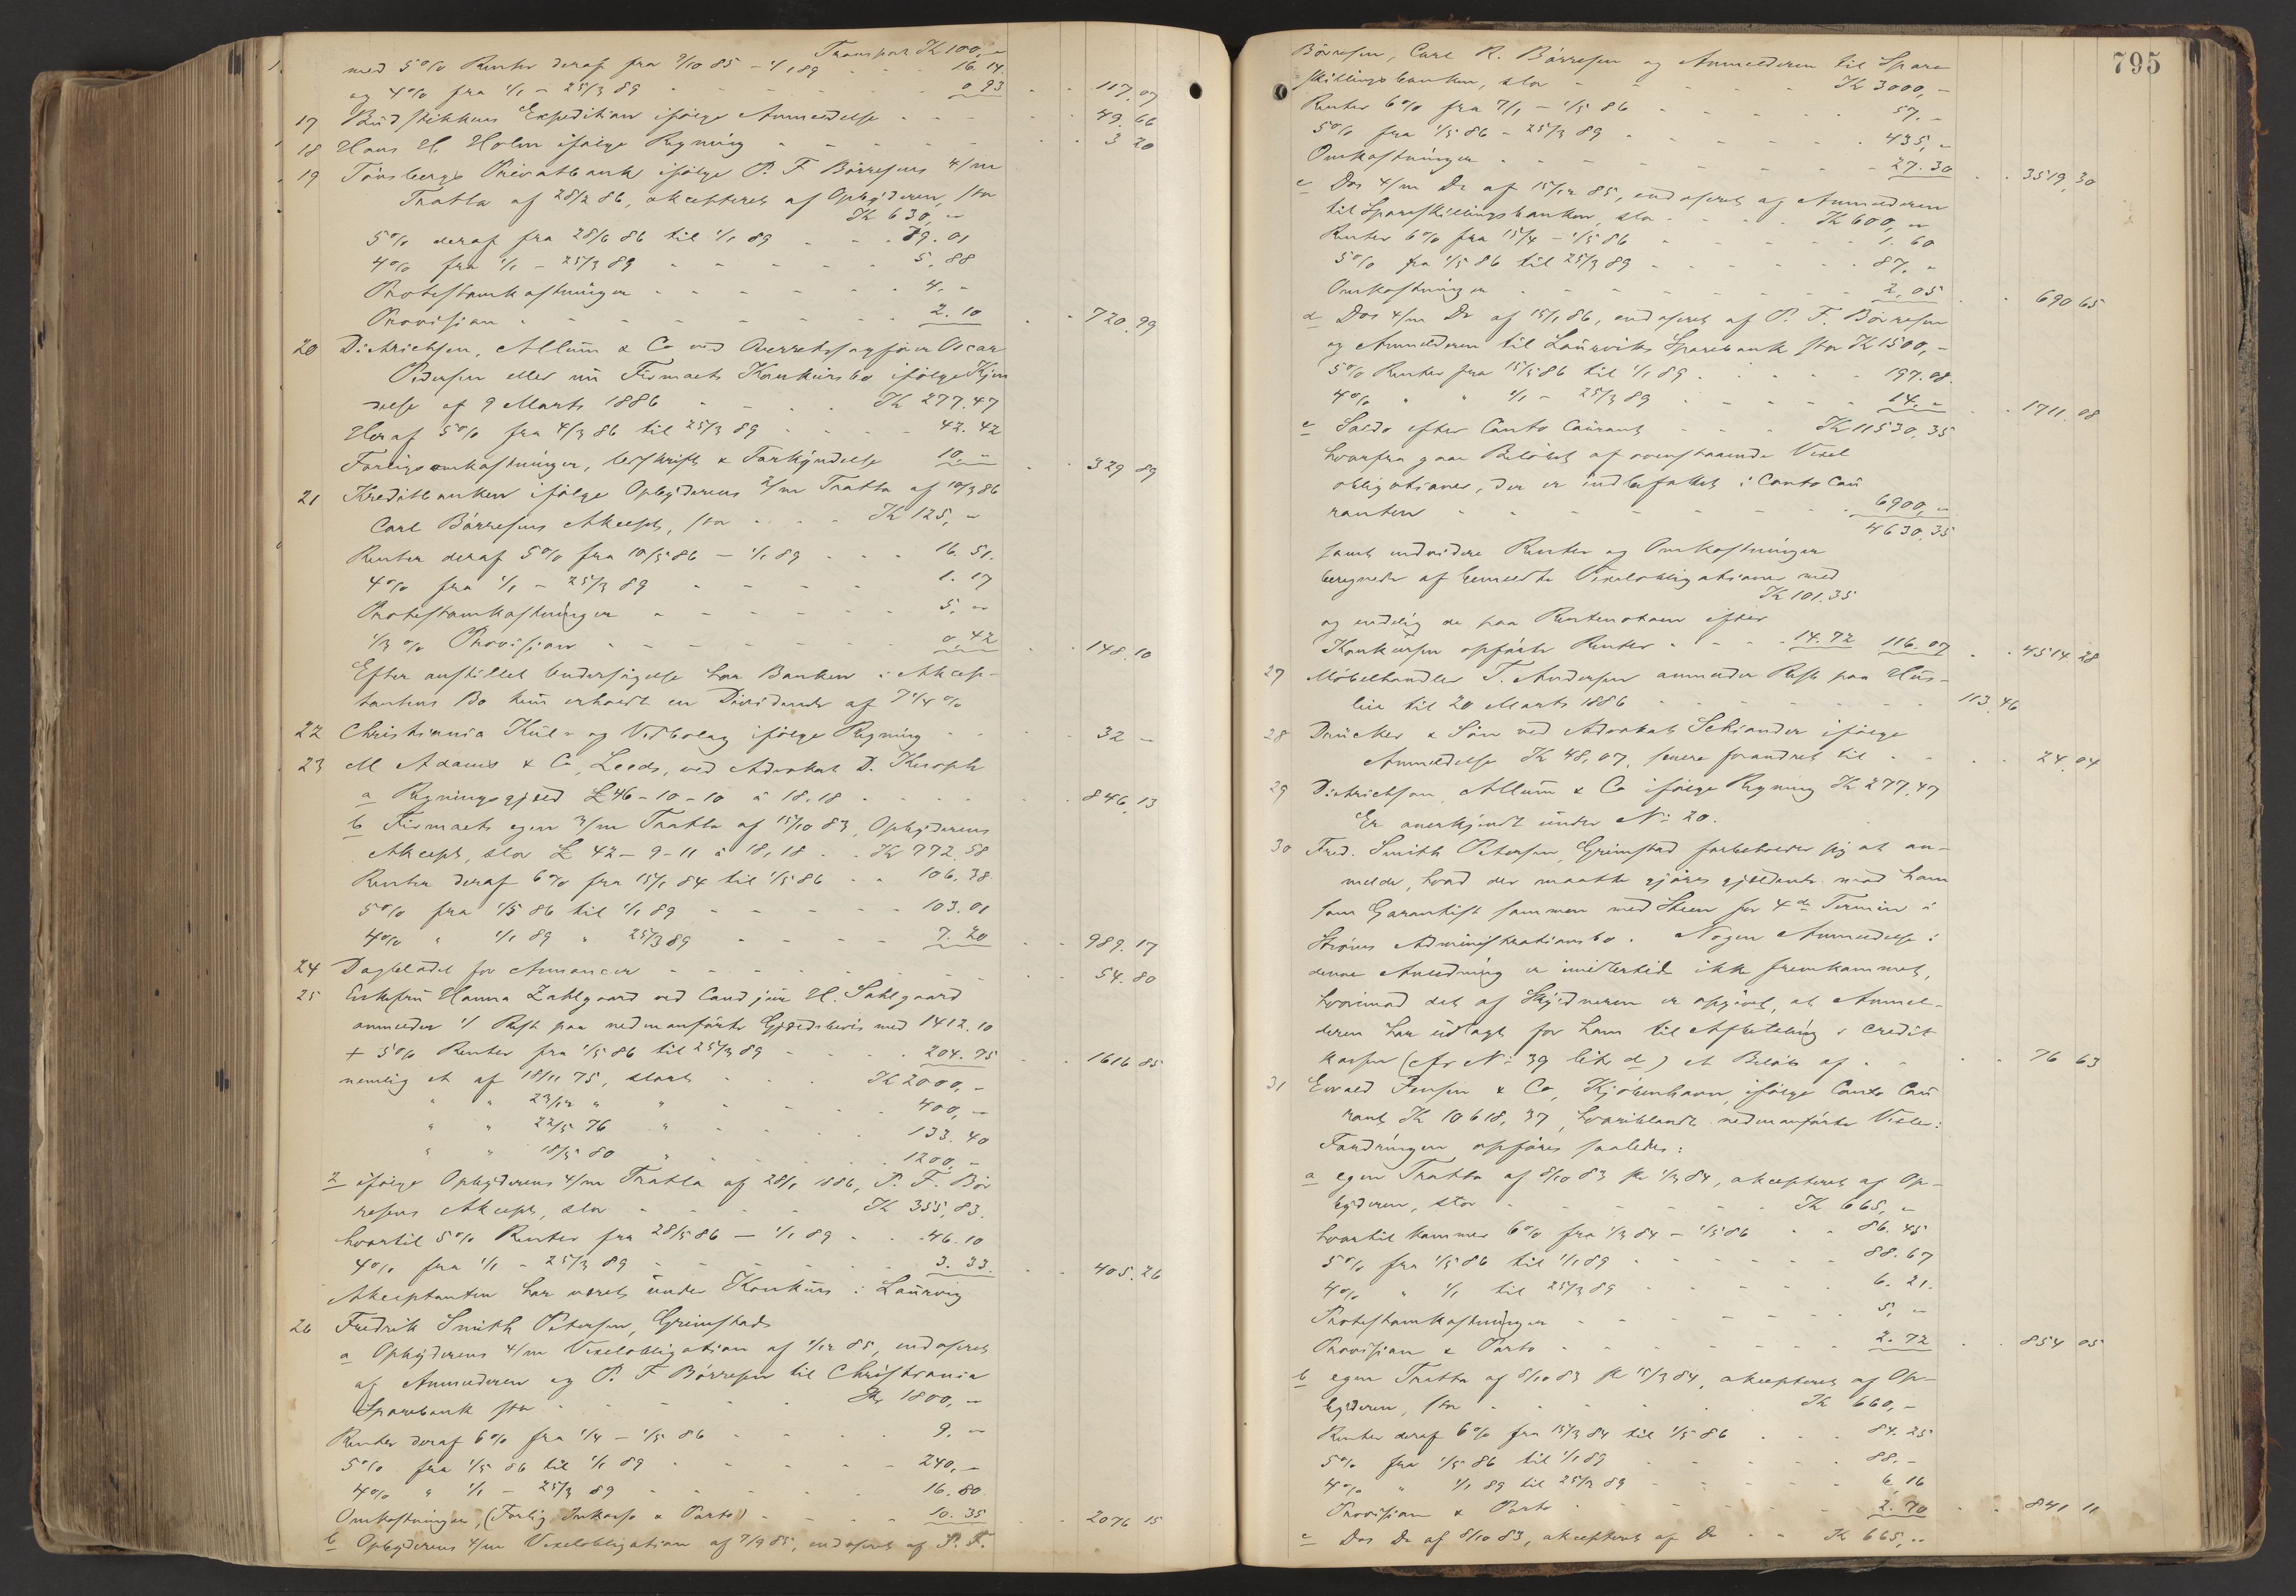 Transport Kr 100, -
med 5% Renter deraf fra 9/10 85 - 1/1 89 16.14.
og 4% fra 1/1 - 25/3 89 0.93 117.07
17 Budstikkens Expedition ifölge Anmeldelse 49.66
18 Hans H. Holm ifölge Regning 3 20
19 Tönsbergs Privatbank ifölge P. F Börresens 4/m
Tratta af 28/2 86, akcepteret af Opbyderen, stor
Kr 630, -
5% deraf fra 28/6 86 til 1/1 89 79.01
4% fra 1/1 - 25/3 89 5.88
Protestomkostninger 4. -
Provision 2.10 720.99
20 Dietrichson, Allum & Co ved Overretssagförer Oscar
Pedersen eller nu Firmaets Konkursbo ifölge Kjen
delse af 9 Marts 1886 Kr 277.47
Heraf 5% fra 4/3 86 til 25/3 89 42.42
Forligsomkostninger, Beskrift & Forkyndelse 10, - 329 89
21 Kreditbanken ifölge Opbyderens 2/m Tratta af 10/3 86
Carl Börresens Akcept, stor Kr 125, -
Renter deraf 5% fra 10/5 86 - 1/1 89 16.51.
4% fra 1/1 - 25/3 89 1.17
Protestomkostninger 5, -
1/3 % Provision 0,42 148.10
Efter anstillet Undersögelse har Banken i Akcep-
tantens Bo kun erholdt en Dividende af 7 1/4 %
22 Christiania Kul- og Vedbolag ifölge Regning 32 -
23 M Adams & Co, Leeds, ved Advokat D. Knoph
a Regningsgjæld £ 46-10-10 à 18.18 846.13
b Firmaets egen 3/m Tratta af 15/10 83, Opbyderens
Akcept, stor £ 42-9-11 à 18,18 Kr 772.58
Renter deraf 6% fra 15/1 84 til 1/5 86 106.38
5% fra 1/5 86 til 1/1 89 103.01
4% " 1/1 89 " 25/3 89 7.20 989.17
24 Dagbladet for Annoncer 54.80
25 Enkefru Hanna Zahlgaard ved Cand jur H. Sahlgaard
anmelder 1/ Rest paa nedenanförte Gjældsbevis med 1412.10
+ 5% Renter fra 1/5 86 til 25/3 89 204.75 1616 85
nemlig et af 18/11 75, stort Kr 2000, -
" " 23/12 " " 400, -
" " 22/5 76 " 133.40
" " 18/5 80 " 1200, -
2 ifölge Opbyderens 4/m Tratta af 28/1 1886, P. F. Bör
resens Akcept, stor Kr 355,83.
hvortil 5% Renter fra 28/5 86 - 1/1 89 46.10
4% fra 1/1 - 25/3 89 3.33. 405.26
Akceptanten har været under Konkurs i Laurvig
26 Fredrik Smith Petersen, Grimstad
a Opbyderens 4/m Vexelobligation af 1/12 85, endosseret
af Anmelderen og P. F Börresen til Christiania
Sparebank stor Kr 1800, -
Renter deraf 6% fra 1/4 - 1/5 86 9, -
5% fra 1/5 86 til 1/1 89 240, -
4% " 1/1 - 25/3 89 16.80
Omkostninger, (Forlig Inkasso & Porto) 10.35 2076 15
b Opbyderens 4/m Vexelobligation af 7/9 85, endosseret af P. F.
795
Börresen, Carl R. Börresen og Anmelderen til Spare
skillingsbanken, stor Kr 3000, -
Renter 6% fra 7/1 - 1/5 86 57, -
5% fra 1/5 86 - 25/3 89 435, -
Omkostninger 27.30 3519,30
c Dos 4/m Do af 15/12 85, endosseret af Anmelderen
til Spareskillingsbanken, stor Kr 600, -
Renter 6% fra 15/4 - 1/5 86 1.60
5% fra 1/5 86 til 25/3 89 87, -
Omkostninger 2,05 690 65
d Dos 4/m Do af 15/1 86, endosseret af P. F. Börresen
og Anmelderen til Laurviks Sparebank stor Kr 1500, -
5% Renter fra 15/5 86 til 1/1 89 197.08.
4% " " 1/1 - 25/3 89 14, - 1711.08
e Saldo efter Conto Courant Kr 11530,35
hvorfra gaar Belöbet af ovenstaaende Vexel
obligationer, der er indbefattet i Conto Cou
ranten 6900, -
4630,35
samt endvidere Renter og Omkostninger
beregnede af bemeldte Vexelobligationer med
Kr 101.35
og endelig de paa Rentenotaen efter
Konkursen opförte Renter 14.72 116.07 4514.28
27 Möbelhandler T. Andersen anmelder Rest paa Hus-
leie til 20 Marts 1886 113.46
28 Drucker & Sön ved Advokat Schiander ifölge
Anmeldelse Kr 48,07, senere forandret til 24.04
29 Dietrichson, Allum & Co ifölge Regning Kr 277.47
Er anerkjendt under No: 20.
30 Fred. Smith Petersen, Grimstad forbeholder sig at an-
melde, hvad der maatte gjöres gjældende mod ham
som Garantist sammen med Steen for 4de Termin i
Ströms Administrationsbo. Nogen Anmeldelse i
denne Anledning er imidlertid ikke fremkommet,
hvorimod det af Skyldneren er opgivet, at Anmel-
deren har udlagt for ham til Afbetaling i Credit
kassen (cfr No: 39 lit d) et Belöb af 76 63
31 Ewald Jensen & Co, Kjöbenhavn, ifölge Conto Cou
rant Kr 10618,37, hvoriblandt nedenanförte Vexler:
Fordringen opföres saaledes:
a egen Tratta af 8/10 83 pr 1/3 84, akcepteret af Op-
byderen, stor Kr 665, -
hvortil kommer 6% fra 1/3 84 - 1/5 86 86.45
5% fra 1/5 86 til 1/1 89 88.67
4% " 1/1 til 25/3 89 6.21.
Protestomkostninger 5, -
Provision & Porto 2.72 854 05
b egen Tratta af 8/10 83 pr 15/3 84, akcepteret af Op-
byderen, stor Kr 660, -
Renter deraf 6% fra 15/3 84 til 1/5 86 84.25
5% fra 1/5 86 til 1/1 89 88. -
4% " 1/1 89 til 25/3 89 6.16
Provision & Porto 2.70 841 11
c Dos Do af 8/10 83, akcepteret af Do Kr 665, -